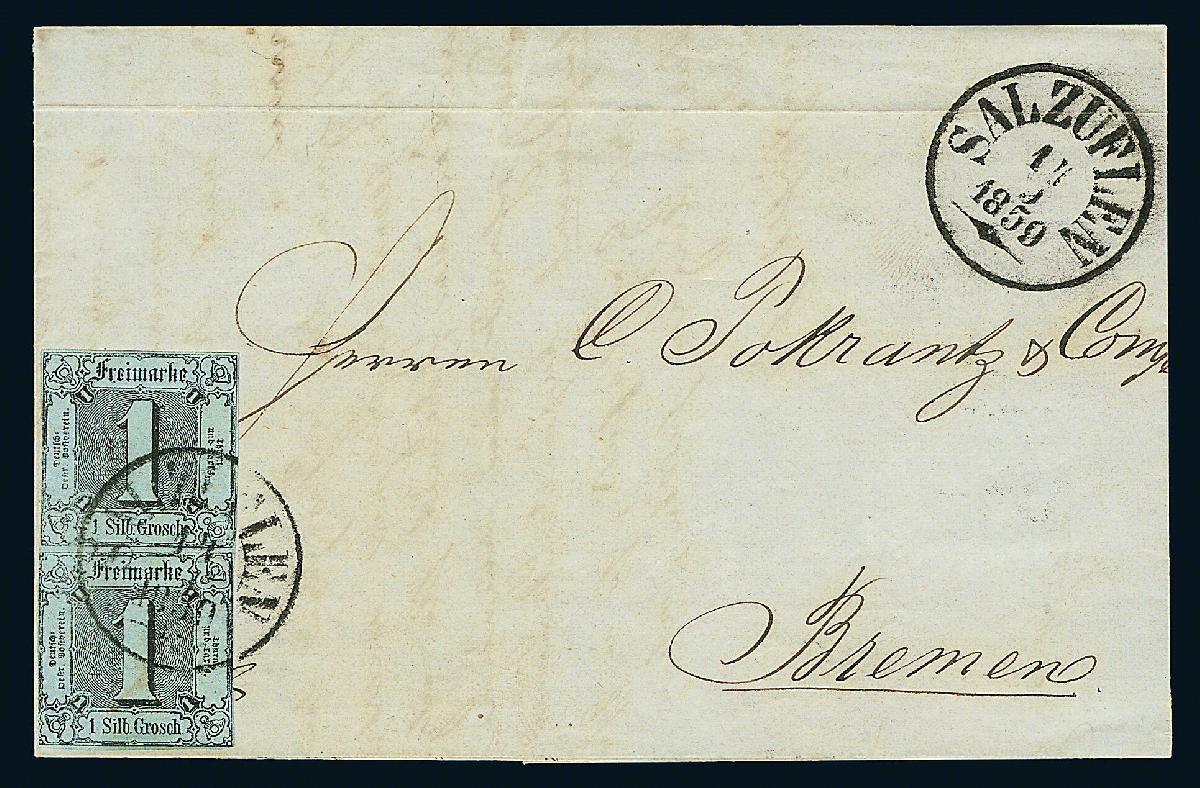 SALZUFLEN
1859
Herren C Pokrantz & Comp
Bremen
Freimarke
1
1
1
Deutsch-
Oestr. Postverein.
1 Silb. Grosch
Freimarke
1
Deutsch-
Oestr. Postverein.
Thurn
und Taxis.
1
1
1 Silb. Grosch
LEN